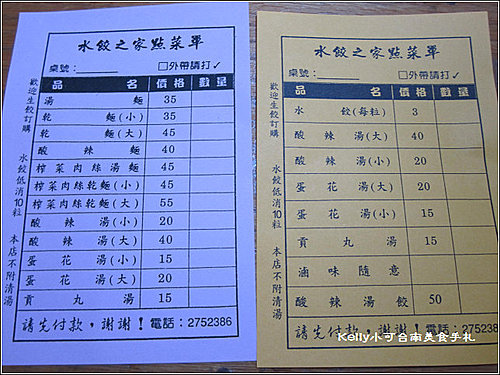 水餃之家點菜單
桌號：______ □外帶請打✓
品名 價格 數量
湯麵 35
乾麵(小) 35
乾麵(大) 45
酸辣麵 40
榨菜肉絲湯麵 45
榨菜肉絲乾麵(小) 45
榨菜肉絲乾麵(大) 55
酸辣湯(小) 20
酸辣湯(大) 40
蛋花湯(小) 15
蛋花湯(大) 20
貢丸湯 15
請先付款，謝謝！電話：2752386
歡迎生餃訂購 水餃低消10粒 本店不附清湯
水餃之家點菜單
桌號：______ □外帶請打✓
品名 價格 數量
水餃(每粒) 3
酸辣湯(大) 40
酸辣湯(小) 20
蛋花湯(大) 20
蛋花湯(小) 15
貢丸湯 15
滷味隨意
酸辣湯餃 50
請先付款，謝謝！電話：2752386
歡迎生餃訂購 水餃低消10粒 本店不附清湯
Kelly小可台南美食手札